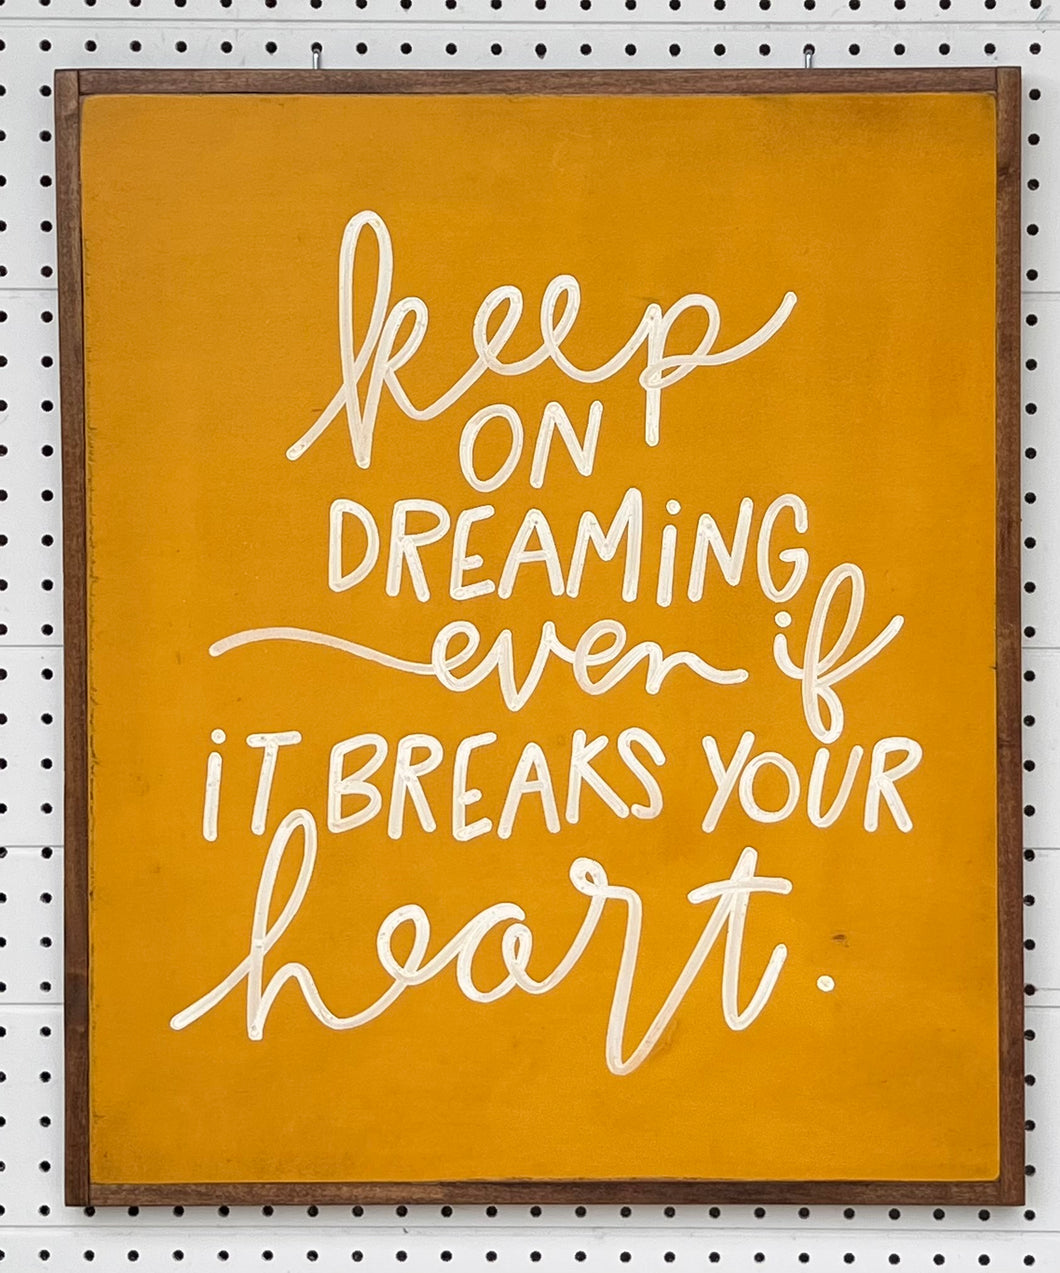 keep
ON
DREAMiNG
even if
iT BREAKS YOUR
heart.